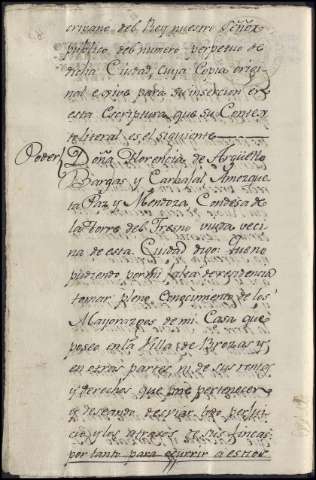 crivano del Rey nuestro Señor
publico del numero perpetuo de
dicha Ciudad, cuya Copia origi-
nal exivo para su insercion en
esta Escriptura, que su Contex-
to literal es el siguiente
Poder Doña Florencia de Argüello
Bargas y Carbajal, Amezque-
ta Paz y Mendoza, Condesa de
la Torre del Fresno viuda veci-
na de esta Ciudad digo: Que no
pudiendo por mi falta de residencia
tomar pleno Conocimiento de los
Mayorazgos de mi Casa que
poseo en la Villa de Brozas y
en otras partes, ni de sus rentas
y derechos que me pertenecen
y deseando desviar todo perjui-
cio y los atrasos de sus fincas
por tanto para ocurrir a estos